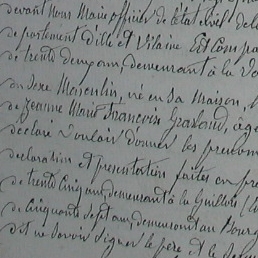 devant nous Maire officier de l'état civil de la
de partement d'ille et Vilaine Est Comparu
de trente deux ans, demeurant à la
du Sexe Masculin, né en Sa Maison,
de Jeanne Marie Francoise âgée
déclaré vouloir donner les prenoms
déclaration et presentation faites en pre
de trente Cinq ans, demeurant à la
de Cinquante Sept ans, demeurant au Bourg
dit ne Savoir Signer le père et le